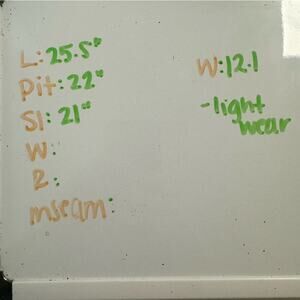 L: 25.5"
Pit: 22"
Sl: 21"
W:
R:
Inseam:
W: 12.1
- light
wear